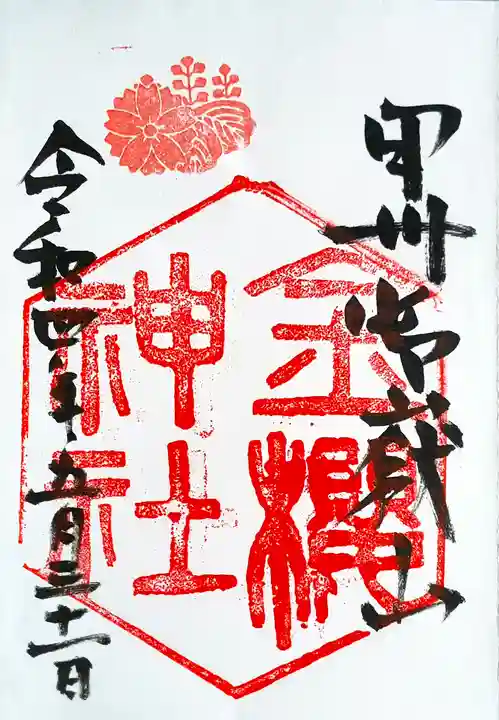 甲州御嶽山
金櫻
神社
令和四年五月三十一日